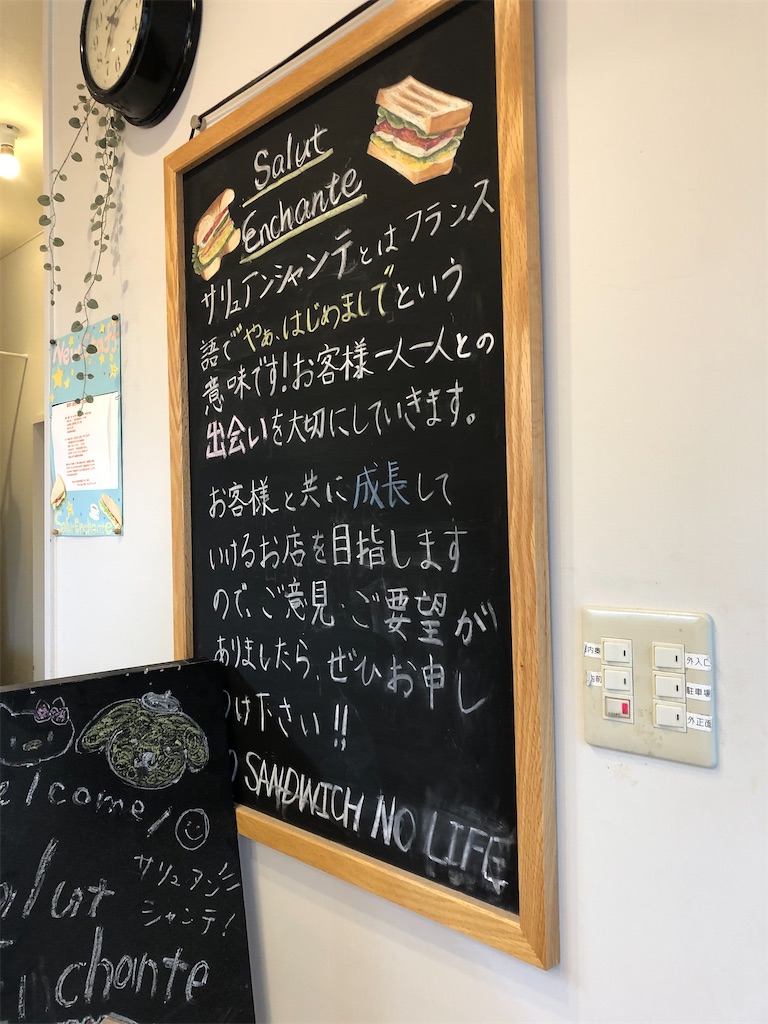 Salut
Enchante
サリュアンシャンテとはフランス
語で"やぁ、はじめまして"という
意味です!お客様一人一人との
出会いを大切にしていきます。
お客様と共に成長して
いけるお店を目指します
ので、ご意見・ご要望が
ありましたら、ぜひお申し
つけ下さい!!
SANDWICH NO LIFE
elcome!
サリュアン
シャンテ!
alut
Enchante
New
Salut Enchante
外入口
駐車場
外正面